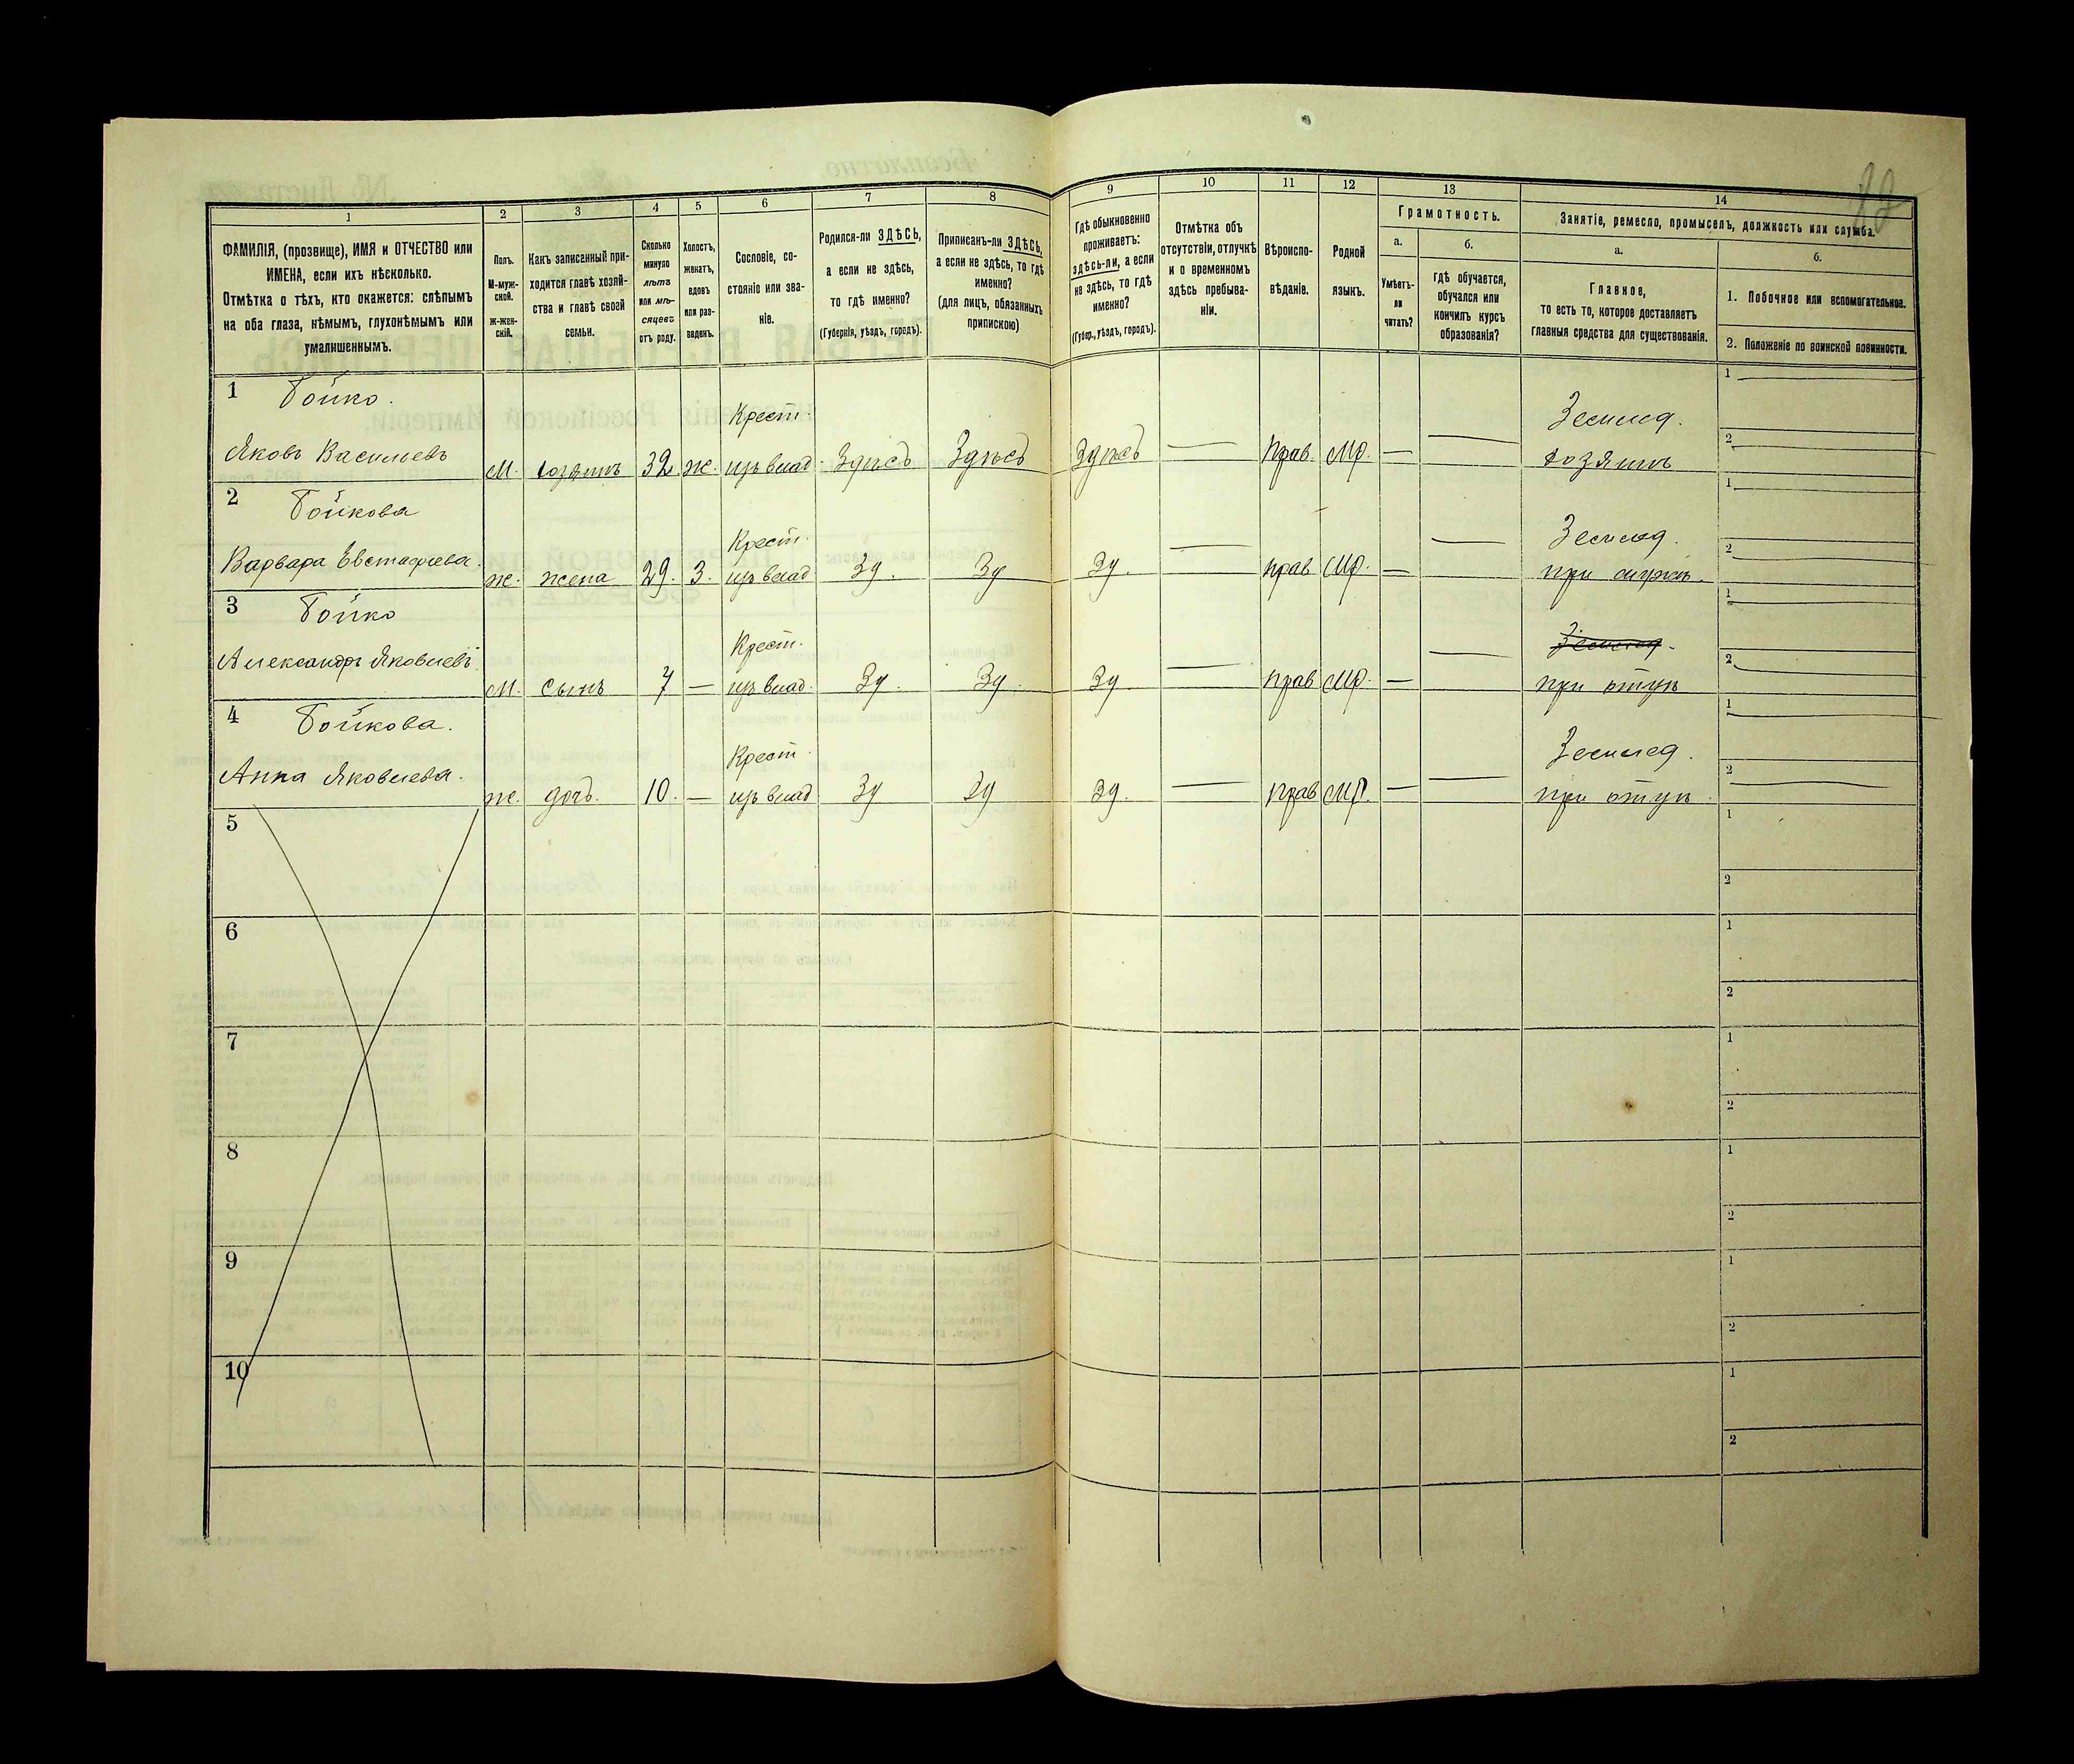 82
1 2 3 4 5 6 7 8 9 10 11 12 13 14
ФАМИЛІЯ, (прозвище), ИМЯ и ОТЧЕСТВО или
ИМЕНА, если ихъ нѣсколько.
Отмѣтка о тѣхъ, кто окажется: слѣпымъ
на оба глаза, нѣмымъ, глухонѣмымъ или
умалишеннымъ.
Полъ.
М-муж-
ской.
Ж-жен-
скій.
Какъ записанный при-
ходится главѣ хозяй-
ства и главѣ своей
семьи.
Сколько
минуло
лѣтъ
или мѣ-
сяцевъ
отъ роду.
Холостъ,
женатъ,
вдовъ
или раз-
веденъ.
Сословіе, со-
стояніе или зва-
ніе.
Родился-ли ЗДѢСЬ,
а если не здѣсь,
то гдѣ именно?
(Губернія, уѣздъ, городъ).
Приписанъ-ли ЗДѢСЬ,
а если не здѣсь, то гдѣ
именно?
(для лицъ, обязанныхъ
припискою)
Гдѣ обыкновенно
проживаетъ:
здѣсь-ли, а если
не здѣсь, то гдѣ
именно?
(Губер., уѣздъ, городъ).
Отмѣтка объ
отсутствіи, отлучкѣ
и о временномъ
здѣсь пребыва-
ніи.
Вѣроиспо-
вѣданіе.
Родной
языкъ.
Грамотность.
а.
Умѣетъ-
ли
читать?
б.
гдѣ обучается,
обучался или
кончилъ курсъ
образованія?
Занятіе, ремесло, промыселъ, должность или служба.
а.
Главное,
то есть то, которое доставляетъ
главныя средства для существованія.
б.
1. Побочное или вспомогательное.
2. Положеніе по воинской повинности.
1 Бойко. Крест. Землед. 1
Яковъ Васильевъ М. хозяинъ 32 ж. изъ влад. Здѣсь Здѣсь Здѣсь — Прав. Мр. — — хозяинъ 2
2 Бойкова Крест. Землед. 1
Варвара Евстафіева. ж. жена 29. З. изъ влад Зд. Зд Зд. — прав Мр. — — при мужѣ. 2
3 Бойко Крест. Землед. 1
Александръ Яковлевъ М. сынъ 7 — изъ влад. Зд. Зд. Зд — прав Мр. — — при отцѣ 2
4 Бойкова. Крест. Землед. 1
Анна Яковлева. ж. дочь. 10. — изъ влад Зд Зд Зд. — прав Мр. — — при отцѣ. 2
5 1
2
6 1
2
7 1
2
8 1
2
9 1
2
10 1
2